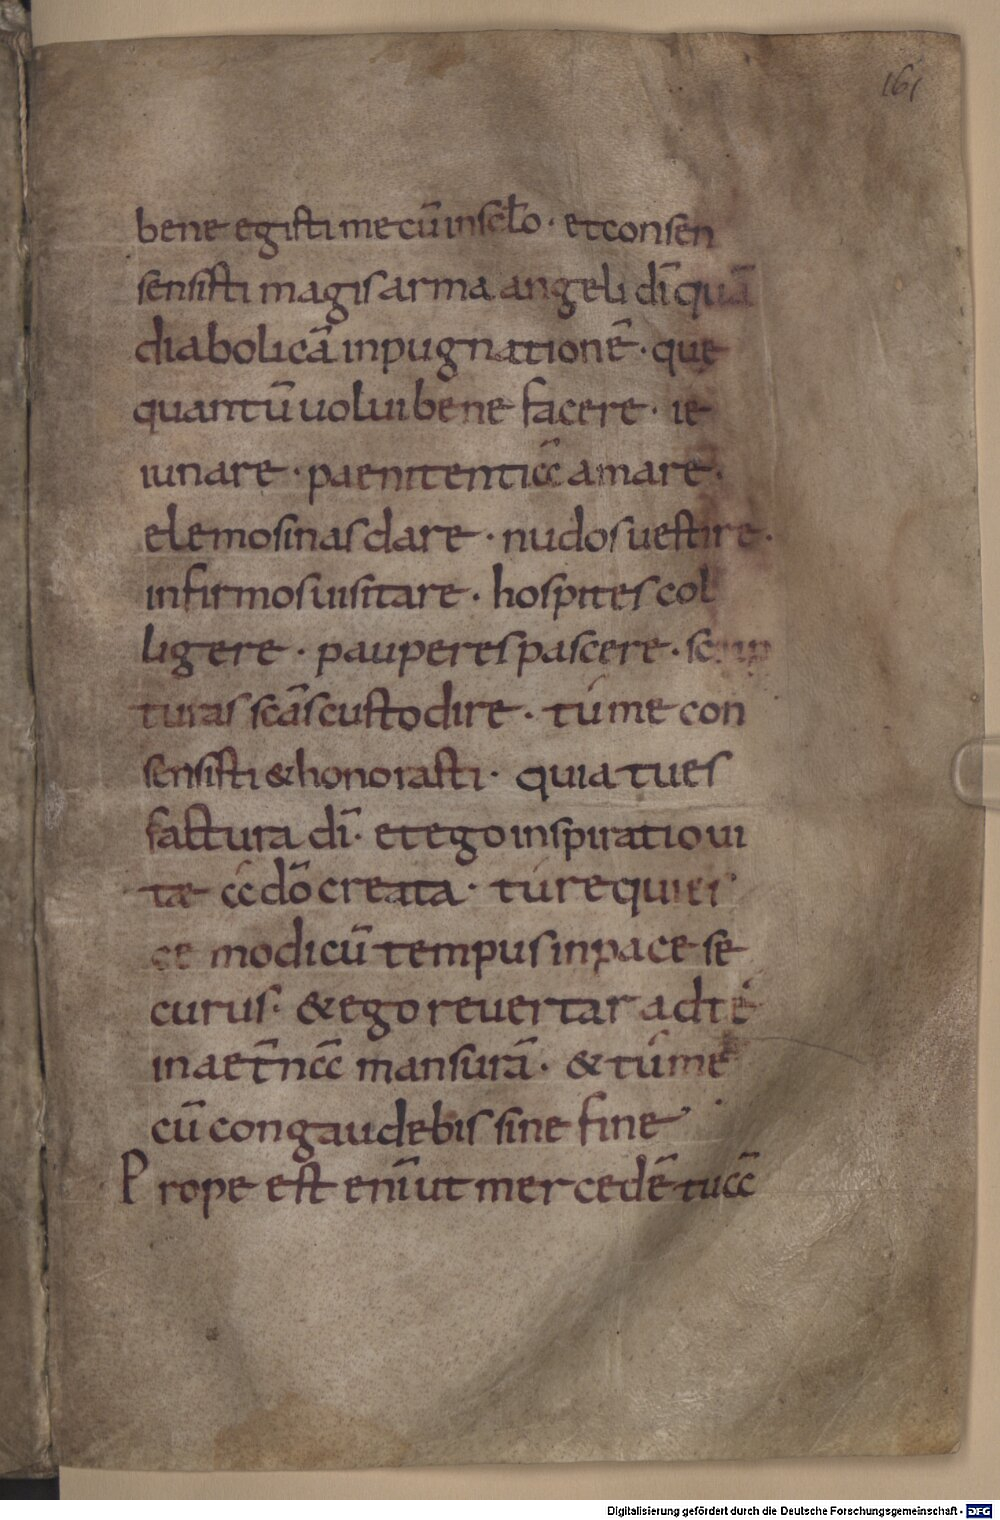 161
bene egisti mecū in scl̄o · et consen
sensisti magis arma angeli dī quā
diabolicā inpugnationē · que
quantū uolui bene facere · ie
iunare · paenitenticc amare ·
elemosinas dare · nudos uestire ·
infirmos uisitare · hospites col
ligere · pauperes pascere · scrip
turas scās custodire · tú me con
sensisti & honorasti · quia tu es
factura dī · et ego inspiratio ui
tae cc dō creata · tú requies
ce modicū tempus in pace se
curus · & ego reuertar ad té
in aet̄ncc mansurā · & tú me
cū congaudebis sine fine
Prope est enī ut mercedē tucc
Digitalisierung gefördert durch die Deutsche Forschungsgemeinschaft - DFG